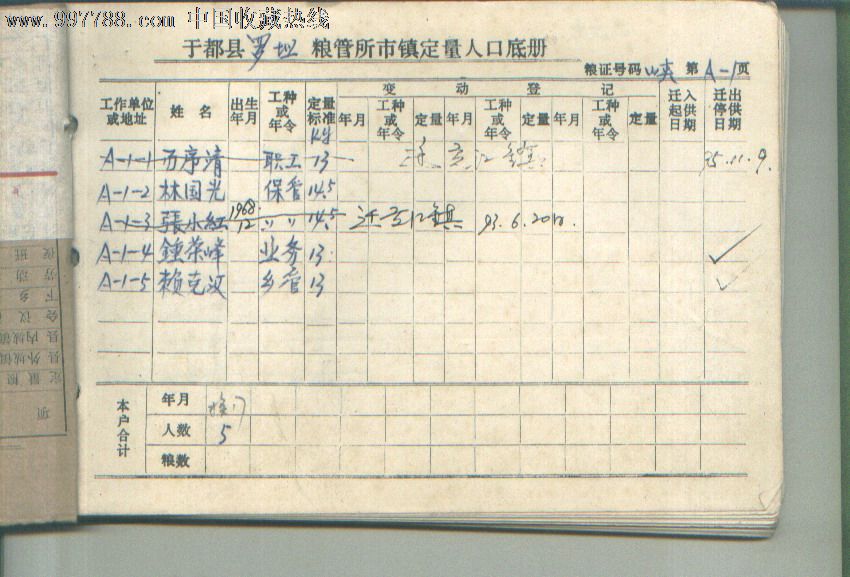 www.997788.com 中国收藏热线
于都县罗坳粮管所市镇定量人口底册
粮证号码 峡 第A-1页
工作单位或地址 姓名 出生年月 工种或年令 定量标准Kg 变动登记 迁入起供日期 迁出停供日期
年月 工种或年令 定量 年月 工种或年令 定量 年月 工种或年令 定量
A-1-1 序清 职工 13 95.11.9.
A-1-2 林国光 保管 14.5
A-1-3 張小紅 1968.12 〃〃 14.5 迁 鎮 93.6.20
A-1-4 鍾荣峰 业务 13
A-1-5 赖克汶 乡管 13
本户合计
年月
人数 5
粮数